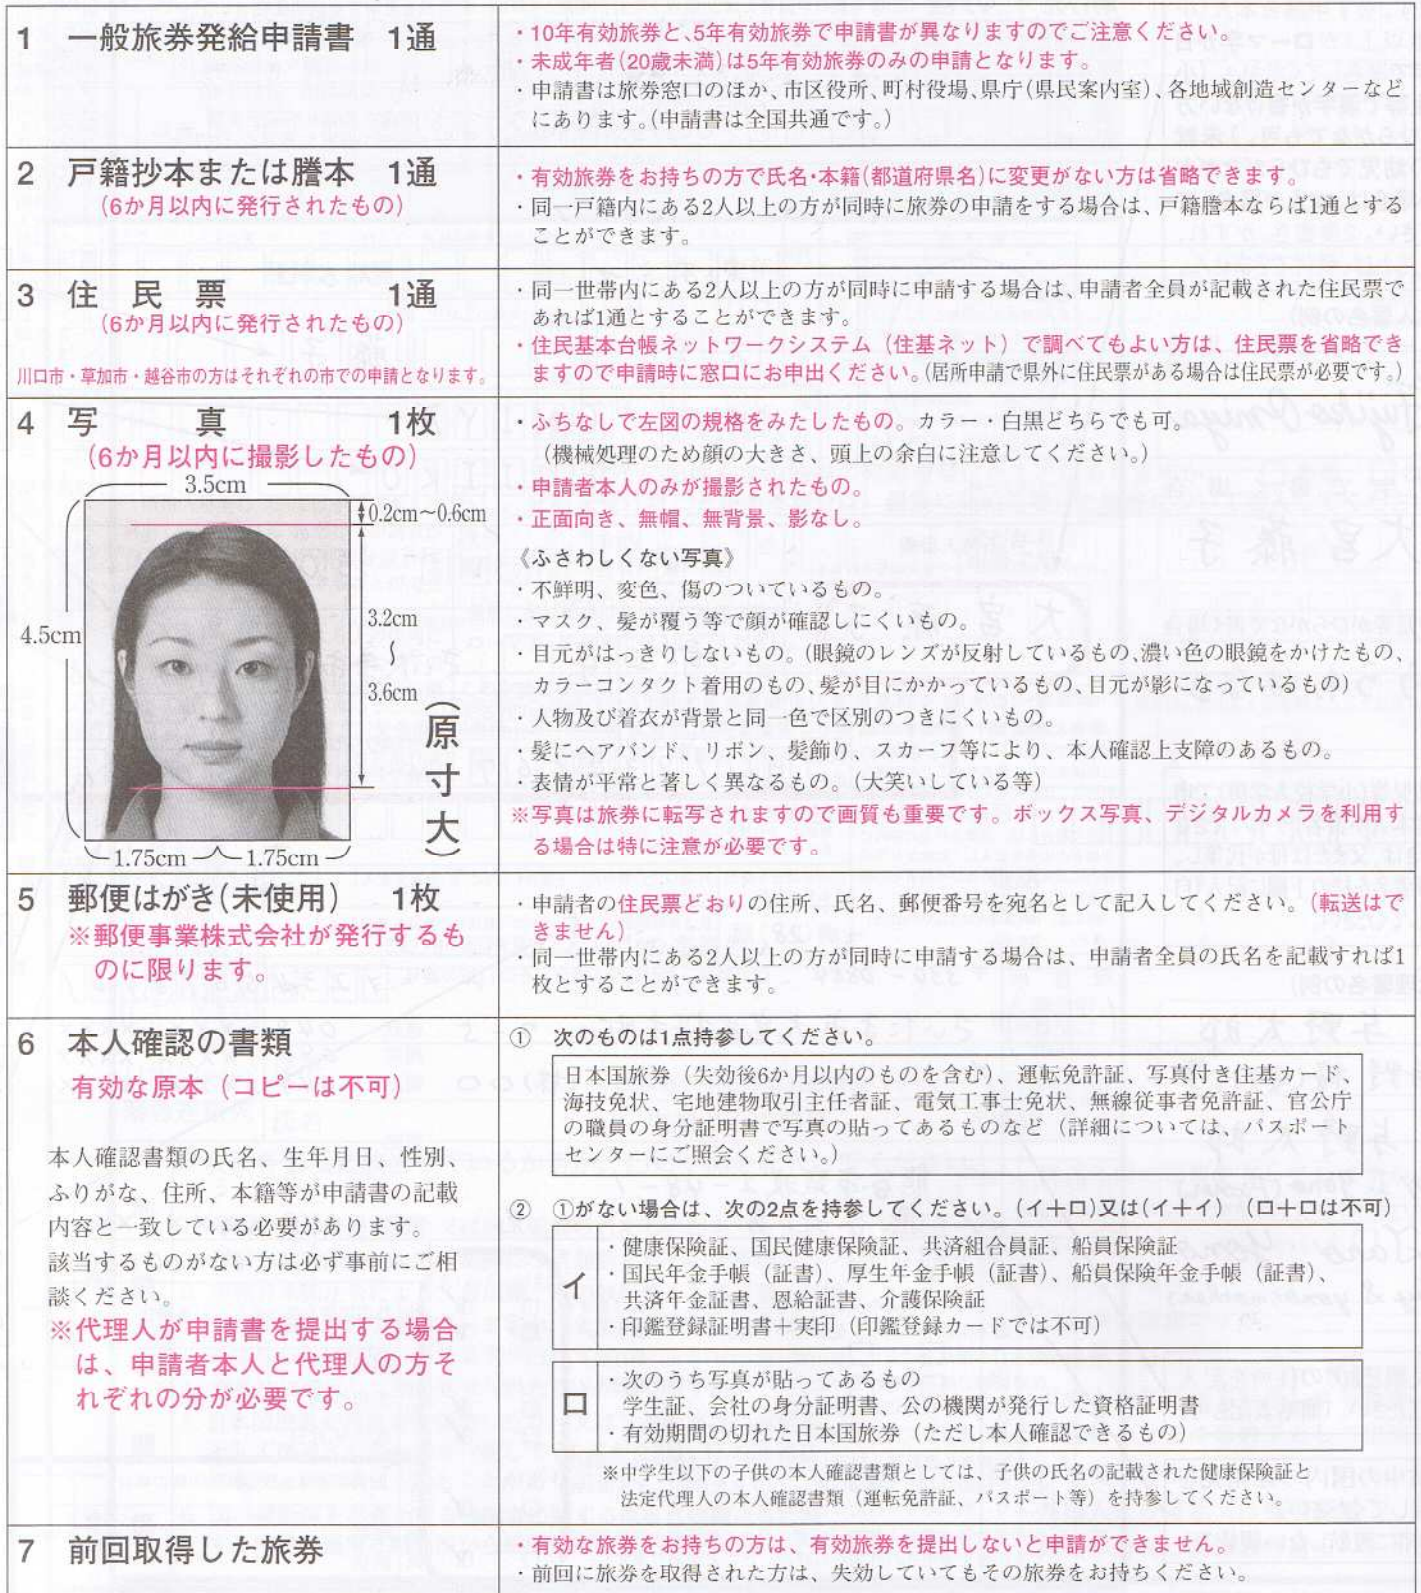 1 一般旅券発給申請書 1通
・10年有効旅券と、5年有効旅券で申請書が異なりますのでご注意ください。
・未成年者(20歳未満)は5年有効旅券のみの申請となります。
・申請書は旅券窓口のほか、市区役所、町村役場、県庁(県民案内室)、各地域創造センターなど
にあります。(申請書は全国共通です。)
2 戸籍抄本または謄本 1通
(6か月以内に発行されたもの)
・有効旅券をお持ちの方で氏名・本籍(都道府県名)に変更がない方は省略できます。
・同一戸籍内にある2人以上の方が同時に旅券の申請をする場合は、戸籍謄本ならば1通とする
ことができます。
3 住民票 1通
(6か月以内に発行されたもの)
川口市・草加市・越谷市の方はそれぞれの市での申請となります。
・同一世帯内にある2人以上の方が同時に申請する場合は、申請者全員が記載された住民票で
あれば1通とすることができます。
・住民基本台帳ネットワークシステム(住基ネット)で調べてもよい方は、住民票を省略でき
ますので申請時に窓口にお申出ください。(居所申請で県外に住民票がある場合は住民票が必要です。)
4 写真 1枚
(6か月以内に撮影したもの)
3.5cm
0.2cm～0.6cm
4.5cm
3.2cm
～
3.6cm
(原寸大)
1.75cm 1.75cm
・ふちなしで左図の規格をみたしたもの。カラー・白黒どちらでも可。
(機械処理のため顔の大きさ、頭上の余白に注意してください。)
・申請者本人のみが撮影されたもの。
・正面向き、無帽、無背景、影なし。
《ふさわしくない写真》
・不鮮明、変色、傷のついているもの。
・マスク、髪が覆う等で顔が確認しにくいもの。
・目元がはっきりしないもの。(眼鏡のレンズが反射しているもの、濃い色の眼鏡をかけたもの、
カラーコンタクト着用のもの、髪が目にかかっているもの、目元が影になっているもの)
・人物及び着衣が背景と同一色で区別のつきにくいもの。
・髪にヘアバンド、リボン、髪飾り、スカーフ等により、本人確認上支障のあるもの。
・表情が平常と著しく異なるもの。(大笑いしている等)
※写真は旅券に転写されますので画質も重要です。ボックス写真、デジタルカメラを利用す
る場合は特に注意が必要です。
5 郵便はがき(未使用) 1枚
※郵便事業株式会社が発行するも
のに限ります。
・申請者の住民票どおりの住所、氏名、郵便番号を宛名として記入してください。(転送はで
きません)
・同一世帯内にある2人以上の方が同時に申請する場合は、申請者全員の氏名を記載すれば1
枚とすることができます。
6 本人確認の書類
有効な原本(コピーは不可)
本人確認書類の氏名、生年月日、性別、
ふりがな、住所、本籍等が申請書の記載
内容と一致している必要があります。
該当するものがない方は必ず事前にご相
談ください。
※代理人が申請書を提出する場合
は、申請者本人と代理人の方そ
れぞれの分が必要です。
① 次のものは1点持参してください。
日本国旅券(失効後6か月以内のものを含む)、運転免許証、写真付き住基カード、
海技免状、宅地建物取引主任者証、電気工事士免状、無線従事者免許証、官公庁
の職員の身分証明書で写真の貼ってあるものなど(詳細については、パスポート
センターにご照会ください。)
② ①がない場合は、次の2点を持参してください。(イ+ロ)又は(イ+イ) (ロ+ロは不可)
イ
・健康保険証、国民健康保険証、共済組合員証、船員保険証
・国民年金手帳(証書)、厚生年金手帳(証書)、船員保険年金手帳(証書)、
共済年金証書、恩給証書、介護保険証
・印鑑登録証明書+実印(印鑑登録カードでは不可)
ロ
・次のうち写真が貼ってあるもの
学生証、会社の身分証明書、公の機関が発行した資格証明書
・有効期間の切れた日本国旅券(ただし本人確認できるもの)
※中学生以下の子供の本人確認書類としては、子供の氏名の記載された健康保険証と
法定代理人の本人確認書類(運転免許証、パスポート等)を持参してください。
7 前回取得した旅券
・有効な旅券をお持ちの方は、有効旅券を提出しないと申請ができません。
・前回に旅券を取得された方は、失効していてもその旅券をお持ちください。